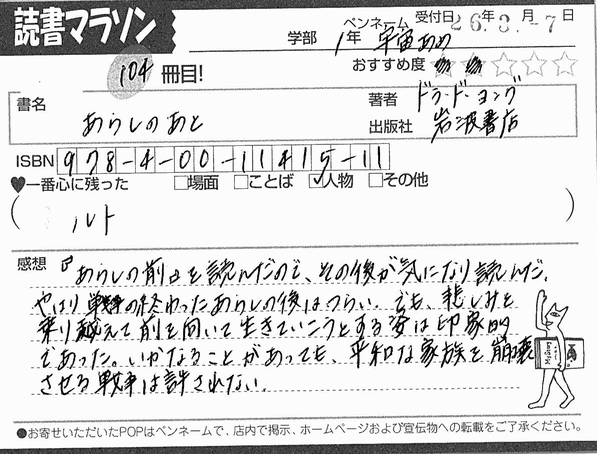 読書マラソン
学部 1年 ペンネーム 宇宙あめ 受付日 26年3月-7日
104冊目!
おすすめ度 ★★☆☆☆
書名 あらしのあと
著者 ドラ・ド・ヨング
出版社 岩波書店
ISBN 978-4-00-11415-11
♥一番心に残った □場面 □ことば ☑人物 □その他
( ルト )
感想
「あらしの前」を読んだので、その後が気になり読んだ。
やはり戦争の終わったあらしの後はつらい。でも、悲しみを
乗り越えて前を向いて生きていこうとする姿は印象的
であった。いかなることがあっても、平和な家族を崩壊
させる戦争は許されない。
●お寄せいただいたPOPはペンネームで、店内で掲示、ホームページおよび宣伝物への転載をご了承ください。